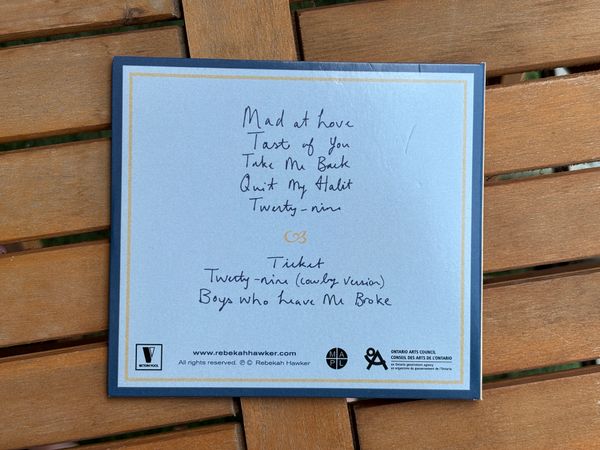 Mad at Love
Tast of You
Take Me Back
Quit My Habit
Twenty-nine
Ticket
Twenty-nine (cowby version)
Boys who Leave Me Broke
www.rebekahhawker.com
All rights reserved. ℗ © Rebekah Hawker
VICTORY POOL
MAPL
ONTARIO ARTS COUNCIL
CONSEIL DES ARTS DE L'ONTARIO
an Ontario government agency
un organisme du gouvernement de l'Ontario